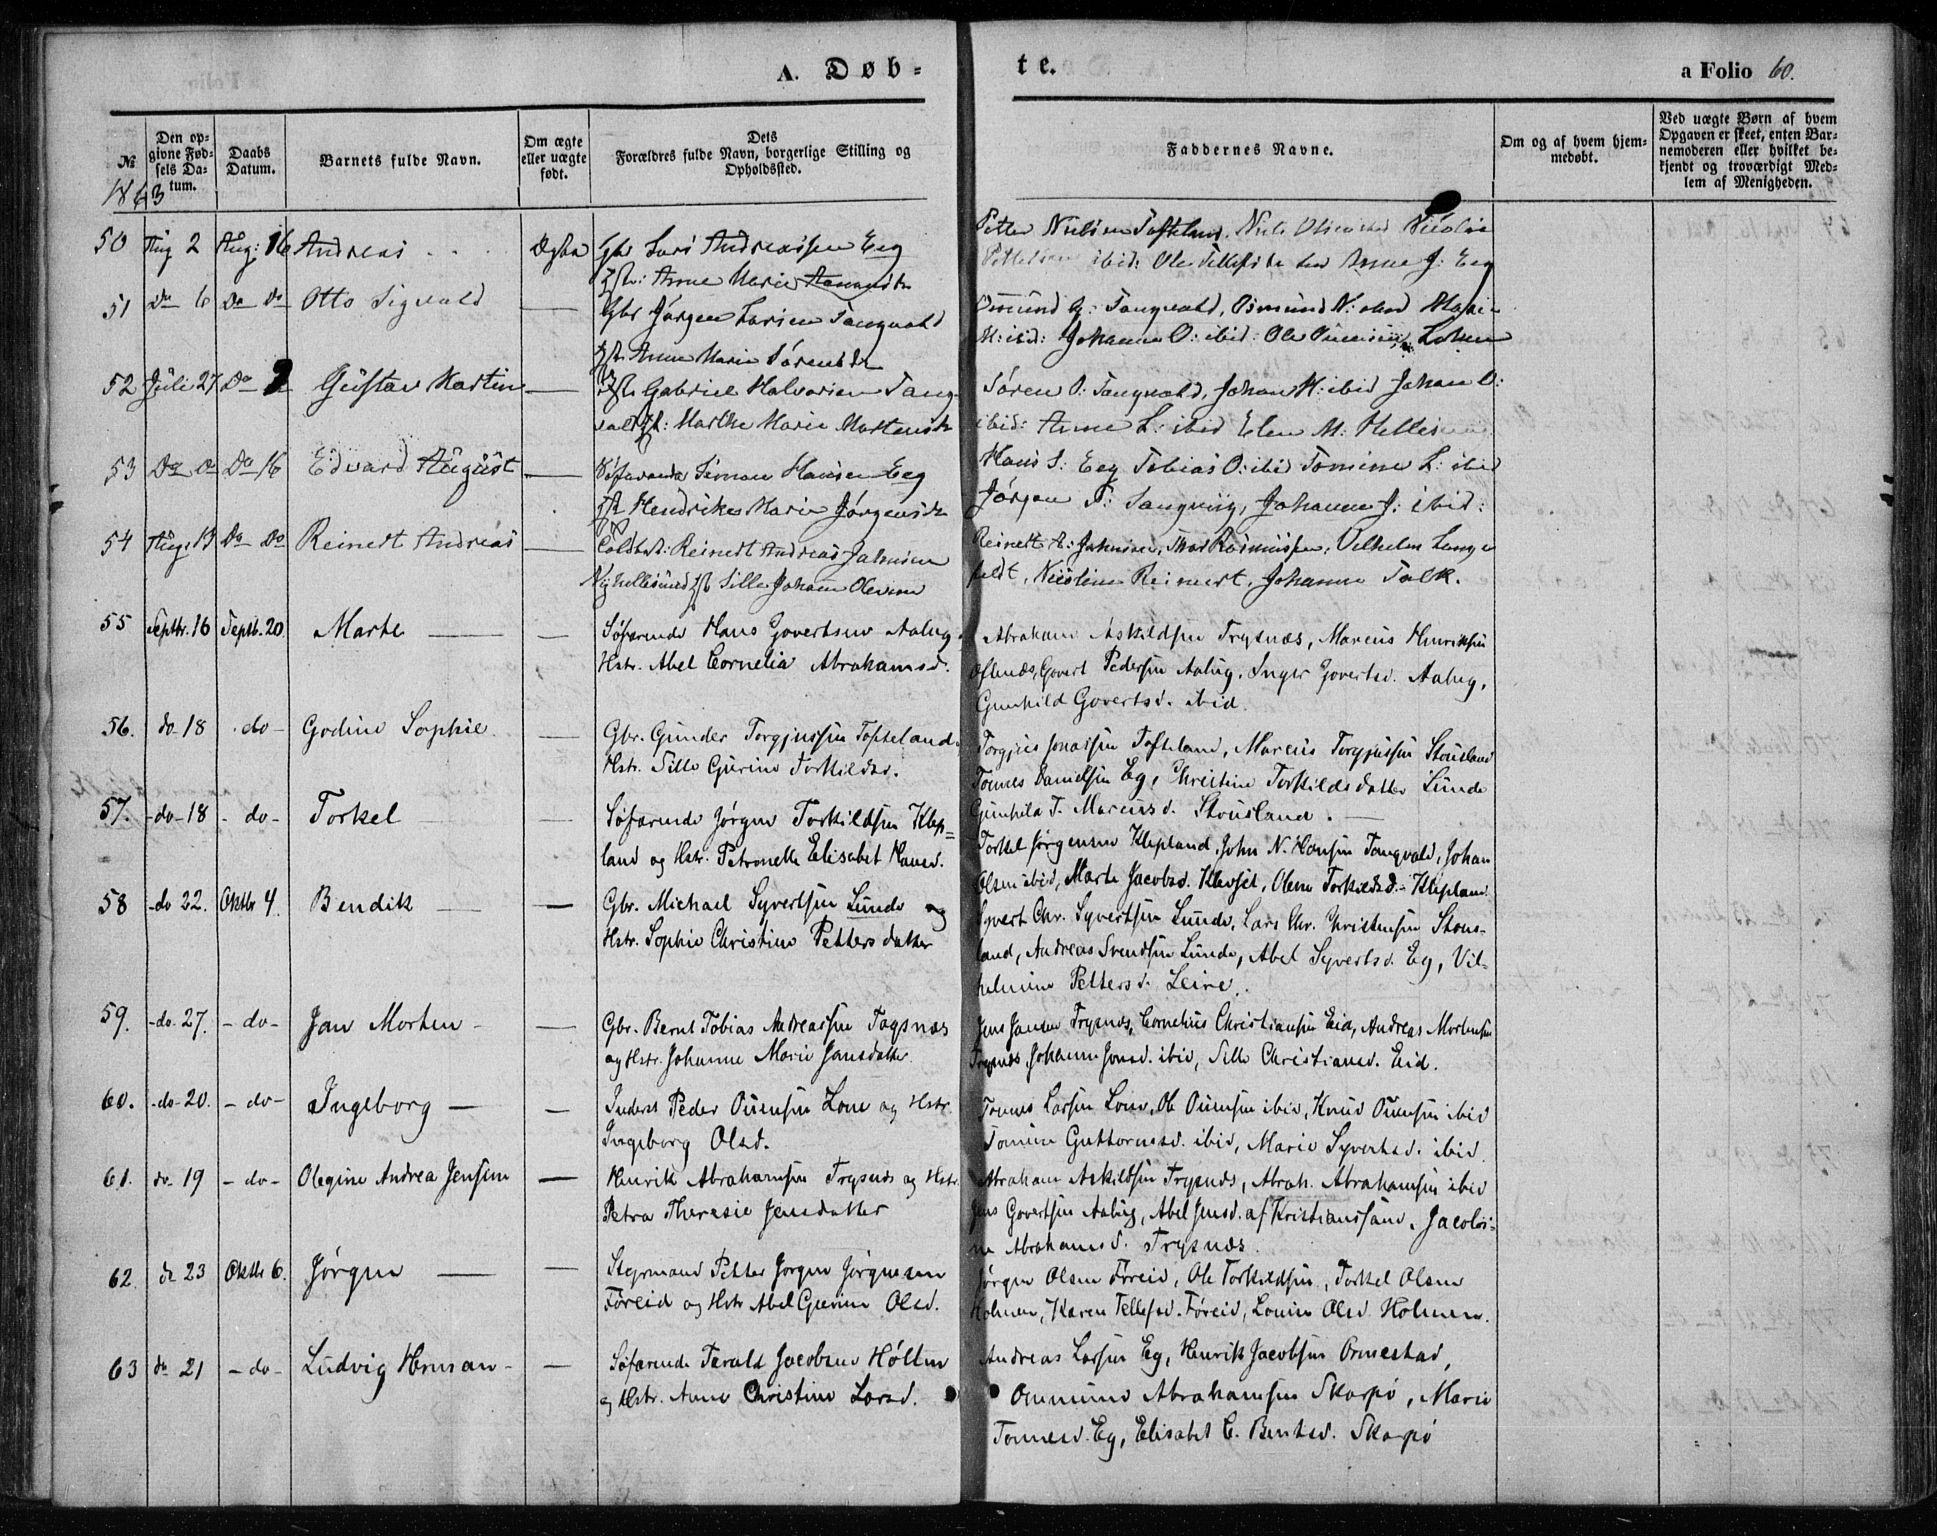 A. Døb-
te.
a Folio 60.
№
Den op-
givne Fød-
sels Da-
tum.
Daabs
Datum.
Barnets fulde Navn.
Om ægte
eller uægte
født.
Dets
Forældres fulde Navn, borgerlige Stilling og
Opholdssted.
Faddernes Navne.
Om og af hvem hjem-
medøbt.
Ved uægte Børn af hvem
Opgaven er skeet, enten Bar-
nemoderen eller hvilket be-
kjendt og troværdigt Med-
lem af Menigheden.
1863
50 Aug 2 Aug: 16 Andreas Gbr Lars Andreassen Eeg
Hstr: Anne Marie
Petter Nielsen Tofteland, Niels Olsen ibid Nicolai
ibid: Ole Anne J: Eeg
51 Do 6 Do Do Otto Sigvald — Gbr Jørgen Larsen Tangvald
Hstr Anne Marie Sørensdr
Osmund G: Tangvald, Osmund N: ibid
M: ibid: Johanne O: ibid: Ole
52 Juli 27 Do 9 Gustav Martin — Gabriel Halvorsen Tang-
vald Hst: Marthe Marie Mortensdr
Søren O: Tangvald, Johan H: ibid Johan O:
ibid: Anne L: ibid Elen M:
53 Do Do 16 Edvard August — Søfarende Simon Hansen Eeg
Hst Hendrikke Marie Jørgensdr
Hans S: Eeg Tobias O: ibid Tomine L: ibid
Jørgen T: Johanne J: ibid:
54 Aug: 13 Do Do Reinert Andreas — Reinert Andreas Jahnsen
Nyhellesund Hst Sille Johanne Olsen
Reinert A: Jahnsen, Rasmussen, Vilhelm Lange
feldt, Nicoline Reinert, Johanne Falk.
55 Septbr. 16 Septb. 20. Marte — — Søfarende Hans Govertsen Aalug
Hstr. Abel Cornelia Abrahamsd.
Abraham Askildsen Trysnæs, Marcus Henriksen
Govert Pedersen Aalug, Inger Govertsd. Aalug,
Gunhild Govertsd. ibid.
56. do 18 - do - Godine Sophie — Gbr. Gunder Torgjussen Tofteland
Hstr. Sille Gurine Torkildsd.
Torgjus Jonassen Tofteland, Marcus Torgjussen Stousland
Tomes Danielsen Eg, Christine Torkildsdatter Lunde
Gunhild T. Marcusd. Stousland. —
57. - do - 18 - do - Torkel — Søfarende Jørgen Torkildsen Klep-
land og Hstr. Petronelle Elisabet Hansd.
Torkel Jørgensen Klepland, John N. Hansen Tangvald, Johan
Olsen ibid, Marte Jacobsd. Klevset, Olene Torkildsd. Klepland
58 - do 22. Oktbr 4. Bendik — — Gbr. Michael Syvertsen Lunde og
Hstr. Sophie Christine Petters datter
Syvert Chr. Syvertsen Lunde, Lars Chr. Christensen Stous-
land, Andreas Svendsen Lunde, Abel Syvertsd. Eg, Vil-
helmine Pettersd. Leire.
59. - do - 27. - do - Jan Morten - — Gbr. Bernt Tobias Andreassen Trysnæs
og Hstr. Johanne Marie Jansdatter
Jens Jansen Trysnæs, Cornelius Christiansen Eid, Andreas Mortensen
Trysnæs Johanne Jonsd. ibid, Sille Christiansd. Eid.
60. - do - 20. - do - Ingeborg — — Inderst Peder Ouensen Lone og Hstr.
Ingeborg Olsd.
Tomes Larsen Lone, Ole Ouensen ibid, Knud Ouensen ibid
Tomine Guttormsd. ibid, Marie Syvertsd. ibid.
61. do - 19 - do - Olegine Andrea Jensine — Henrik Abrahamsen Trysnæs og Hstr.
Petra Theresie Jensdatter
Abraham Askildsen Trysnæs, Abrah. Abrahamsen ibid
Jens Govertsen Aalug, Abel Jensd. af Kristianssand, Jacobi-
ne Abrahamsd. Trysnæs.
62. do 23 Oktbr 6. Jørgen — — Styrmand Petter Jørgen Jørgensen
Føreid og Hstr Abel Gurine Olsd.
Jørgen Olsen Føreid, Ole Torkildsen, Torkel Olsen
Holmen, Karen Tellefsd. Føreid, Lovise Olsd Holmen.
63 do 21 - do - Ludvig Herman - — Søfarende Tarald Jacobsen Holten
og Hstr. Anne Christine Larsd.
Andreas Larsen Eg, Henrik Jacobsen Ormestad,
Ommund Abrahamsen Skarpø, Marie
Tomesd. Eg, Elisabet C. Berntsd. Skarpø